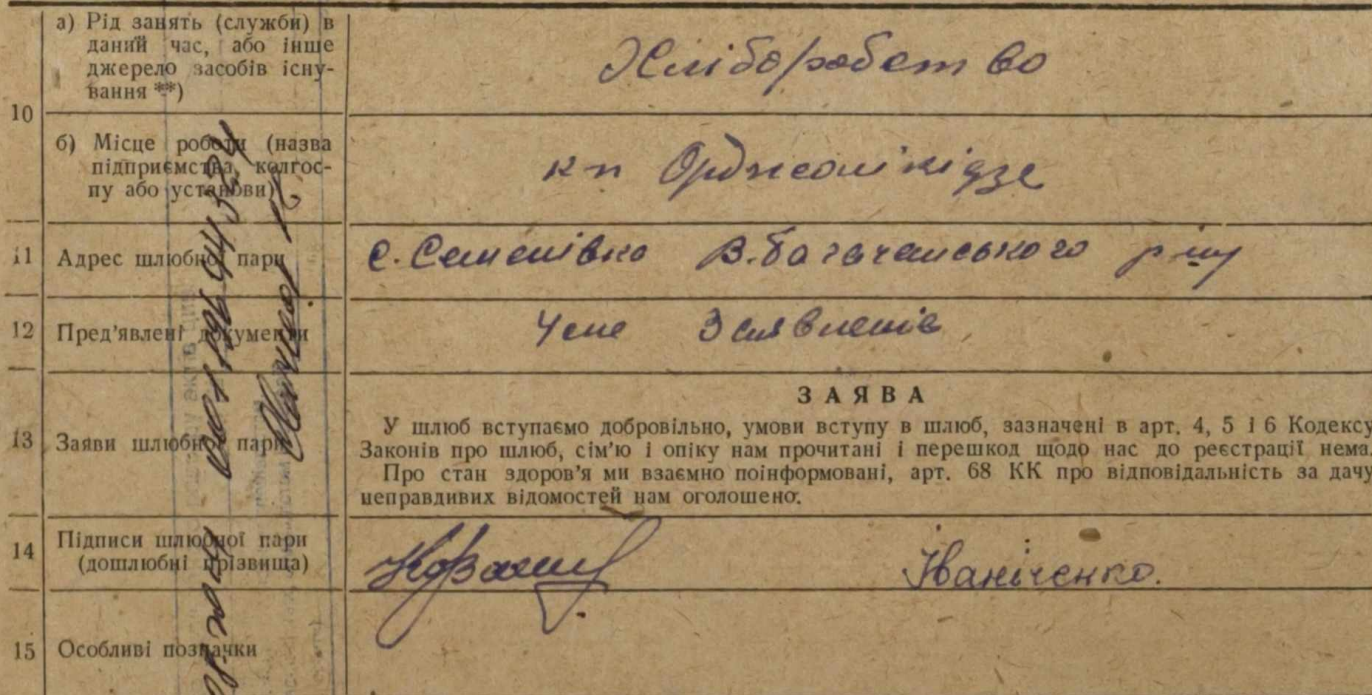 а) Рід занять (служби) в
даний час, або інше
джерело засобів існу-
вання **)
Хліборобство
10
б) Місце роботи (назва
підприємства, колгос-
пу або установи)
к-п Орджонікідзе
11 Адрес шлюбної пари
с. Семенівка В. Багачанського р-ну
12 Пред'явлені документи
Усне Заявленіє
13 Заяви шлюбної пари
ЗАЯВА
У шлюб вступаємо добровільно, умови вступу в шлюб, зазначені в арт. 4, 5 і 6 Кодексу
Законів про шлюб, сім'ю і опіку нам прочитані і перешкод щодо нас до реєстрації нема.
Про стан здоров'я ми взаємно поінформовані, арт. 68 КК про відповідальність за дачу
неправдивих відомостей нам оголошено.
14 Підписи шлюбної пари
(дошлюбні прізвища)
Іваніченко.
15 Особливі позначки